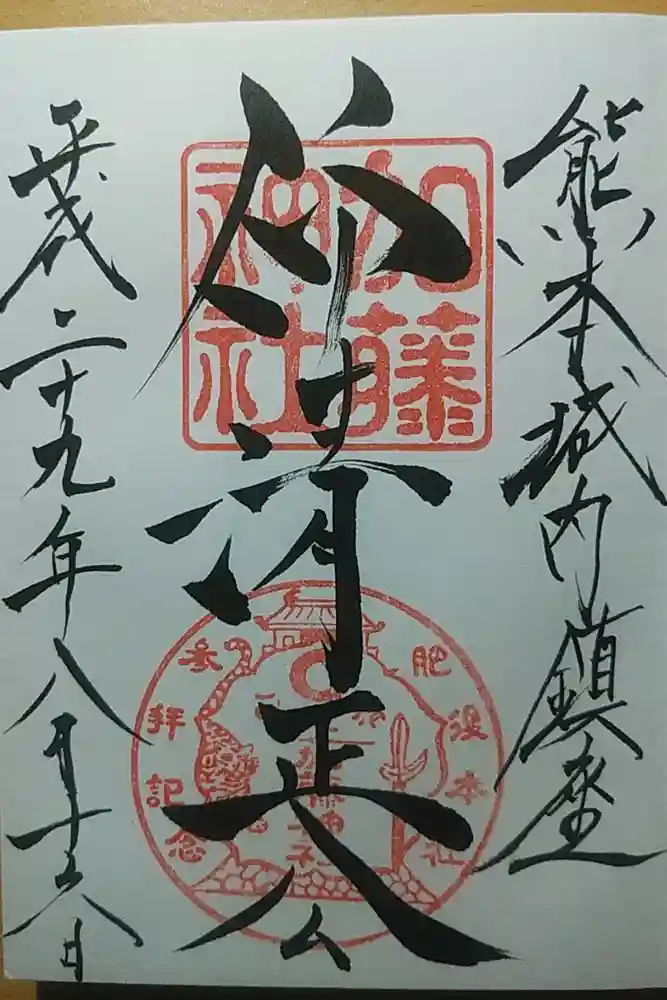 熊本城内鎮座
仰清正公
平成二十九年八月十六日
加藤
神社
肥後本社
参拝記念
加藤神社